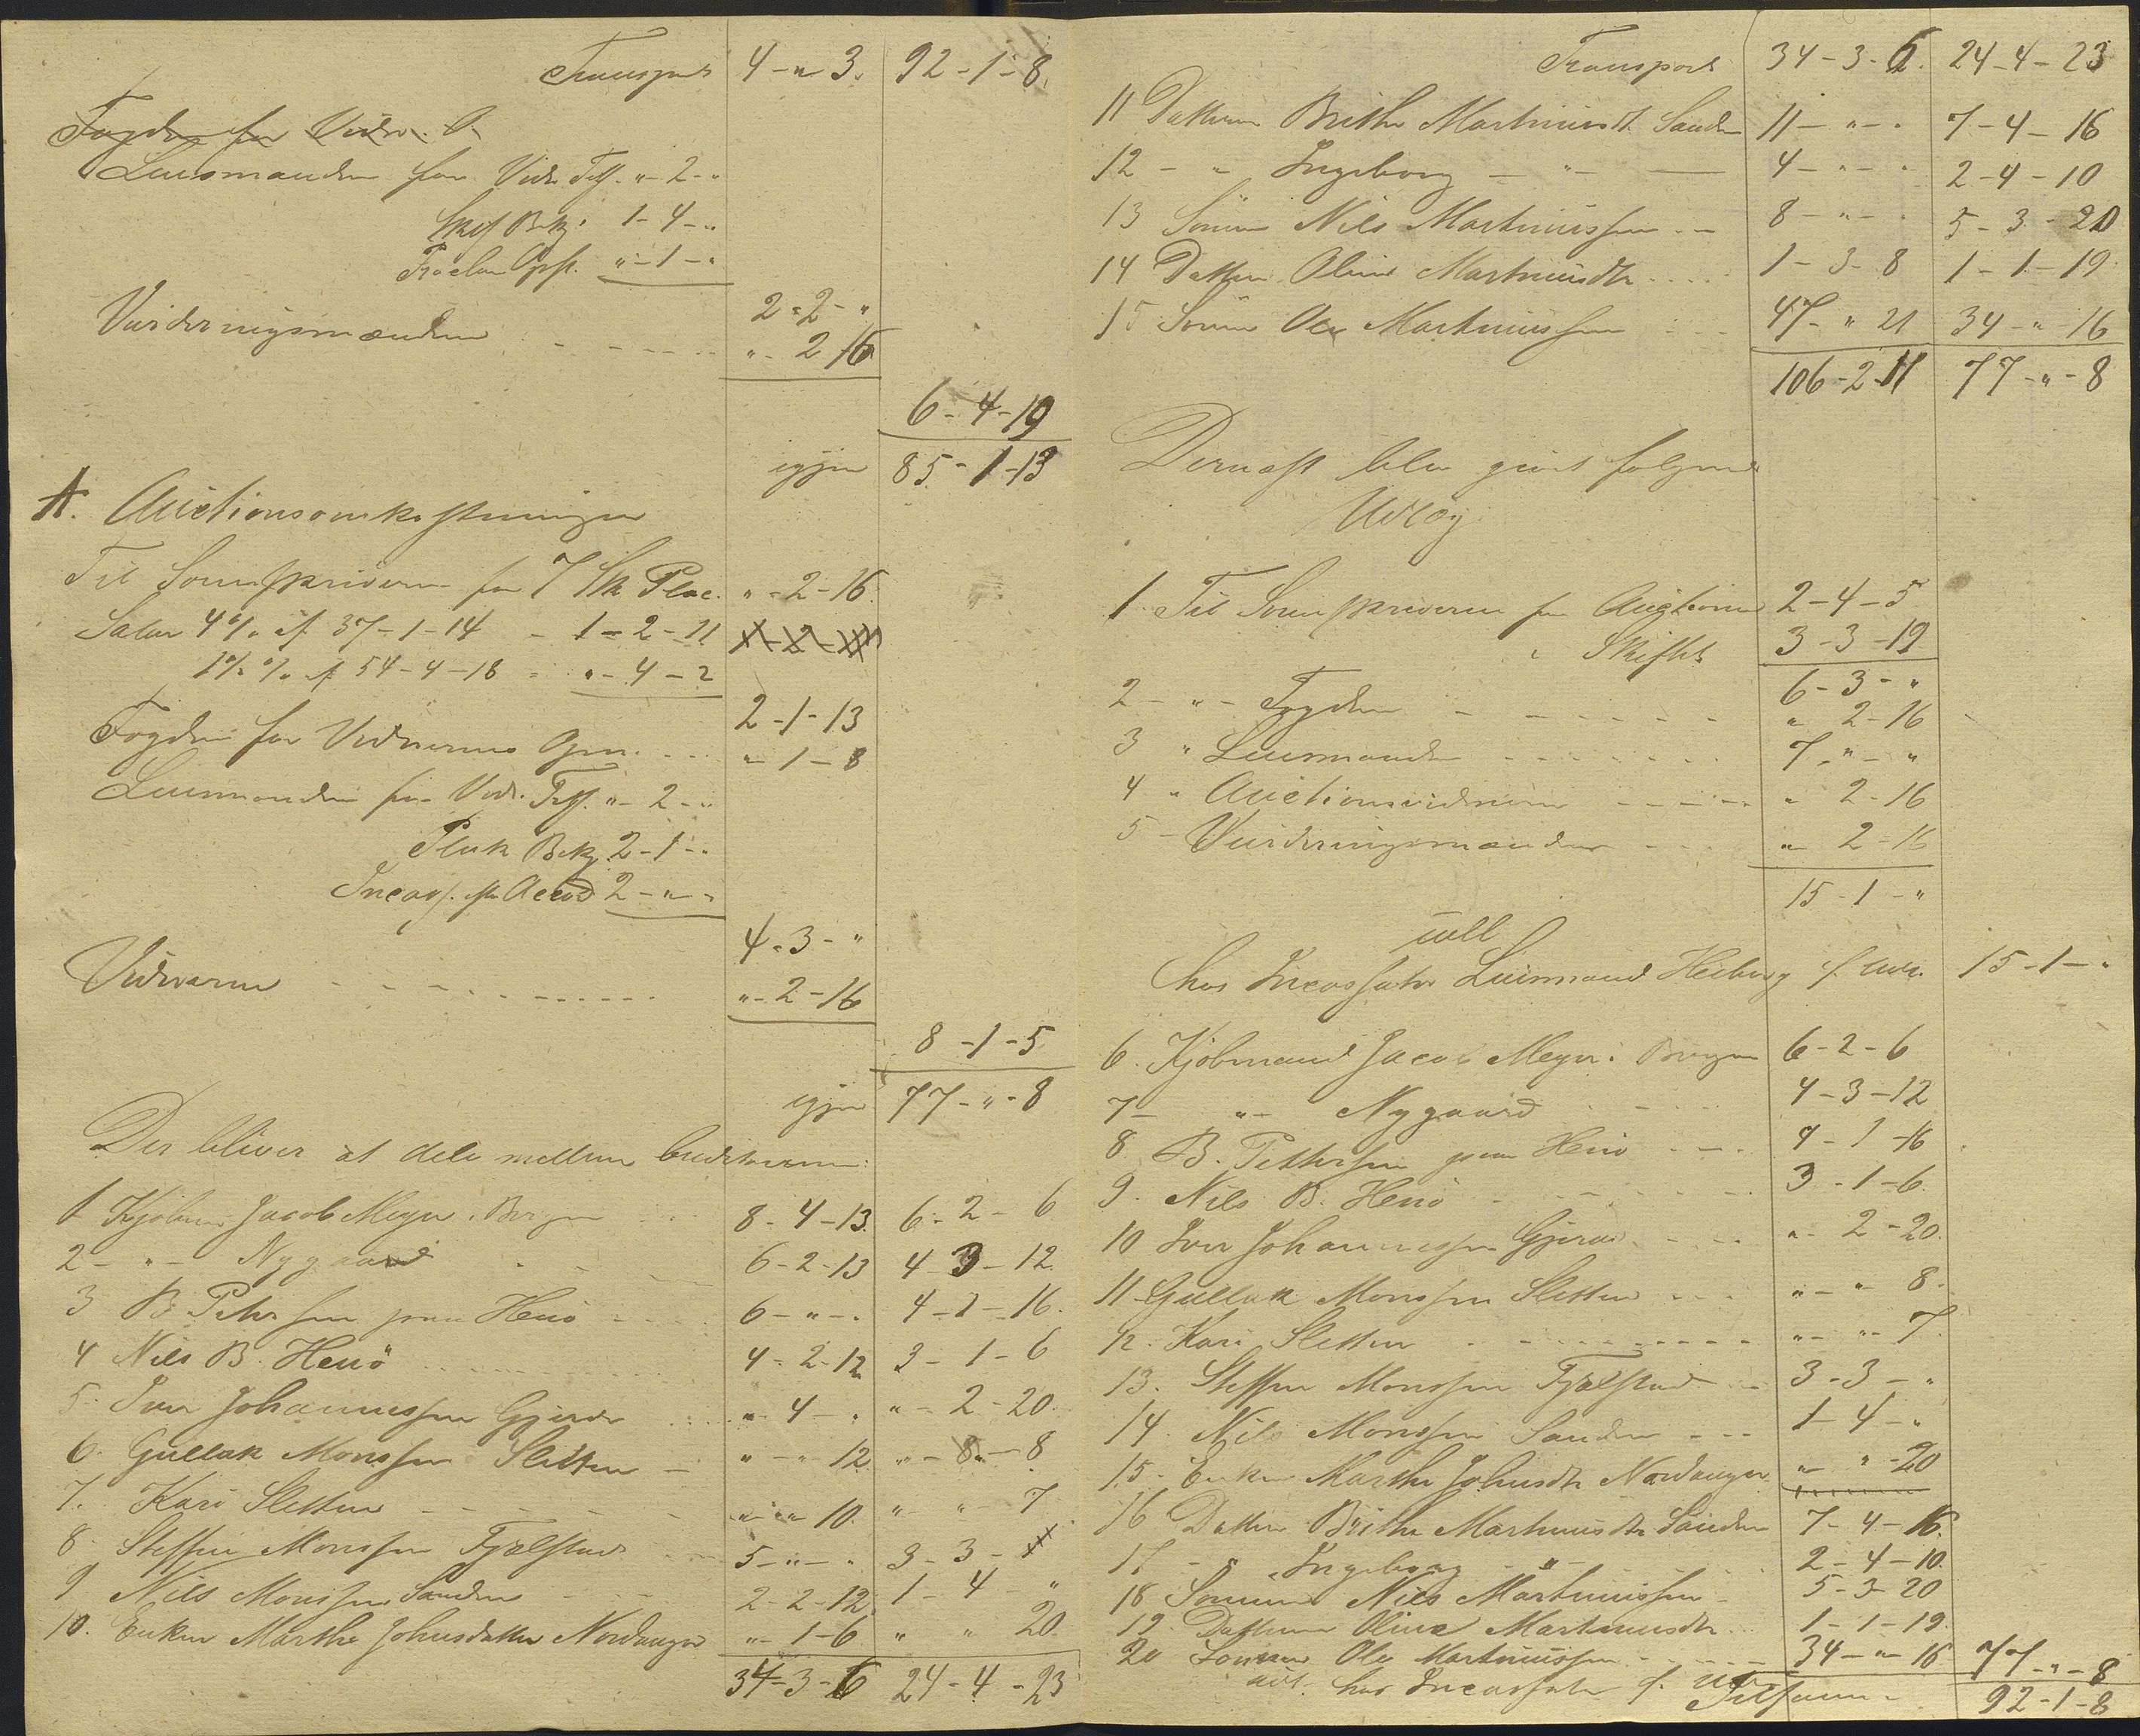 Transport 4 - " 3. 92 - 1 - 8.
Fogden for Vidn. O.
Lensmanden for Vidn. Tilf. " - 2 - "
Skif Bekj. 1 - 4 - "
Proclam Opsl. " - 1 - "
2 - 2 - "
Vurderingsmændene " - 2 16
6 - 4 - 19
igjen 85 - 1 - 13
A. Auctionsomkostninger
Til Sorenskriveren for 7 Sk Plac. " - 2 - 16.
Salær 4 % af 37 - 1 - 14 - 1 - 2 - 11
1½ % af 54 - 4 - 18 - " - 4 - 2
2 - 1 - 13
Fogden for Vidnernes Opn. " - 1 - 8
Lensmanden for Vidn. Tilf. " - 2 - "
Plak Bekj. 2 - 1 - "
Incass. efter Accord 2 - " - "
4 - 3 - "
Vidnerne " - 2 - 16
8 - 1 - 5
igjen 77 - " - 8
Der bliver at dele mellem Creditorerne:
1 Kjøbm. Jacob Meyer i Bergen 8 - 4 - 13. 6 - 2 - 6
2 - " - Nygaard 6 - 2 - 13 4 3 - 12.
3 B. Petersen paa Henø 6 - " - " 4 - 1 - 16.
4 Nils B. Henø 4 - 2 - 12 3 - 1 - 6
5. Iver Johannessen Gjerde " - 4 - " " - 2 - 20.
6. Gullak Monssen Sletten " - " 12 " - " - 8
7. Kari Sletten " - " 10. " " - 7
8. Steffen Monssen Fjælstad 5 - " - " 3 - 3 - "
9 Nils Monssen Sanden 2 - 2 - 12. 1 - 4 - "
10. Enken Marthe Johnsdatter Nordanger " - 1 - 6 " " 20.
34 - 3 - 6 24 - 4 - 23
Transport 34 - 3 - 6. 24 - 4 - 23
11 Datteren Brithe Martinusdt. Sanden 11 - " - " 7 - 4 - 16
12 - " Ingeborg - " - 4 - " - " 2 - 4 - 10
13 Sønnen Nils Martinussen 8 - " - " 5 - 3 - 20
14 Datteren Oline Martinusdtr 1 - 3 - 8 1 - 1 - 19
15 Sønnen Ole Martinussen 47 - " 21 34 - " - 16
106 - 2 - 11 77 - " - 8
Dernæst blev gjort følgende
Udlæg
1. Til Sorenskriveren for Auctionen 2 - 4 - 5
" Skiftet 3 - 3 - 19
6 - 3 - "
2 - " - Fogden " 2 - 16
3 " Lensmanden 7 - " - "
4 " Auctionsvidnerne " 2 - 16
5 - Vurderingsmændene " 2 - 16
15 - 1 - "
hos Incassator Lensmand Heiberg f. 15 - 1 - "
6. Kjøbmand Jacob Meyer i Bergen 6 - 2 - 6
7 - " - Nygaard 4 - 3 - 12
8 B. Pettersen paa Henø 4 - 1 - 16
9. Nils B. Henø 3 - 1 - 6.
10 Iver Johannessen Gjerde " - 2 - 20.
11 Gullak Monssen Sletten " - " 8.
12. Kari Sletten " - " - 7.
13. Steffen Monssen Fjælstad 3 - 3 - "
14. Nils Monssen Sanden 1 - 4 - "
15. Enken Marthe Johnsdtr Nordanger " - " - 20
16 Datteren Brithe Martinusdtr Sanden 7 - 4 - 16.
17 - " Ingeborg - " - 2 - 4 - 10.
18 Sønnen Nils Martinussen 5 - 3 - 20
19. Datteren Oline Martinusdtr 1 - 1 - 19.
20 Sønnen Ole Martinussen 34 - " - 16 77 - " - 8
hos Incassator f.
Tilsammen 92 - 1 - 8